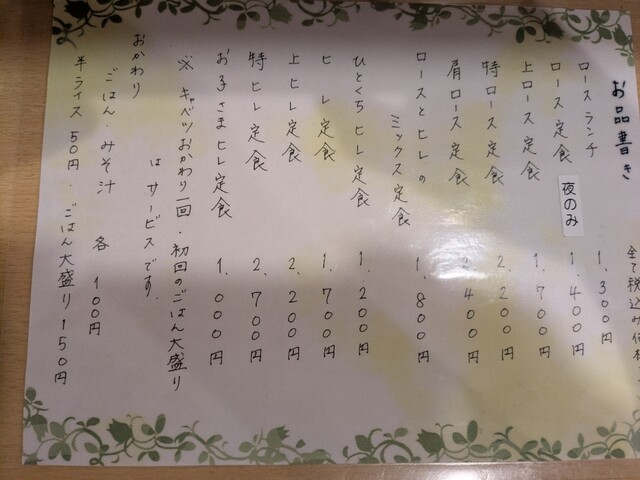 お品書き
全て税込み価格
ロースランチ 1,300円
ロース定食 夜のみ 1,400円
上ロース定食 1,700円
特ロース定食 2,200円
肩ロース定食 2,400円
ロースとヒレの
ミックス定食 1,800円
ひとくちヒレ定食 1,200円
ヒレ定食 1,700円
上ヒレ定食 2,200円
特ヒレ定食 2,700円
お子さまヒレ定食 1,000円
※キャベツおかわり一回・初回のごはん大盛り
はサービスです.
おかわり
ごはん・みそ汁 各 100円
半ライス 50円・ごはん大盛り150円